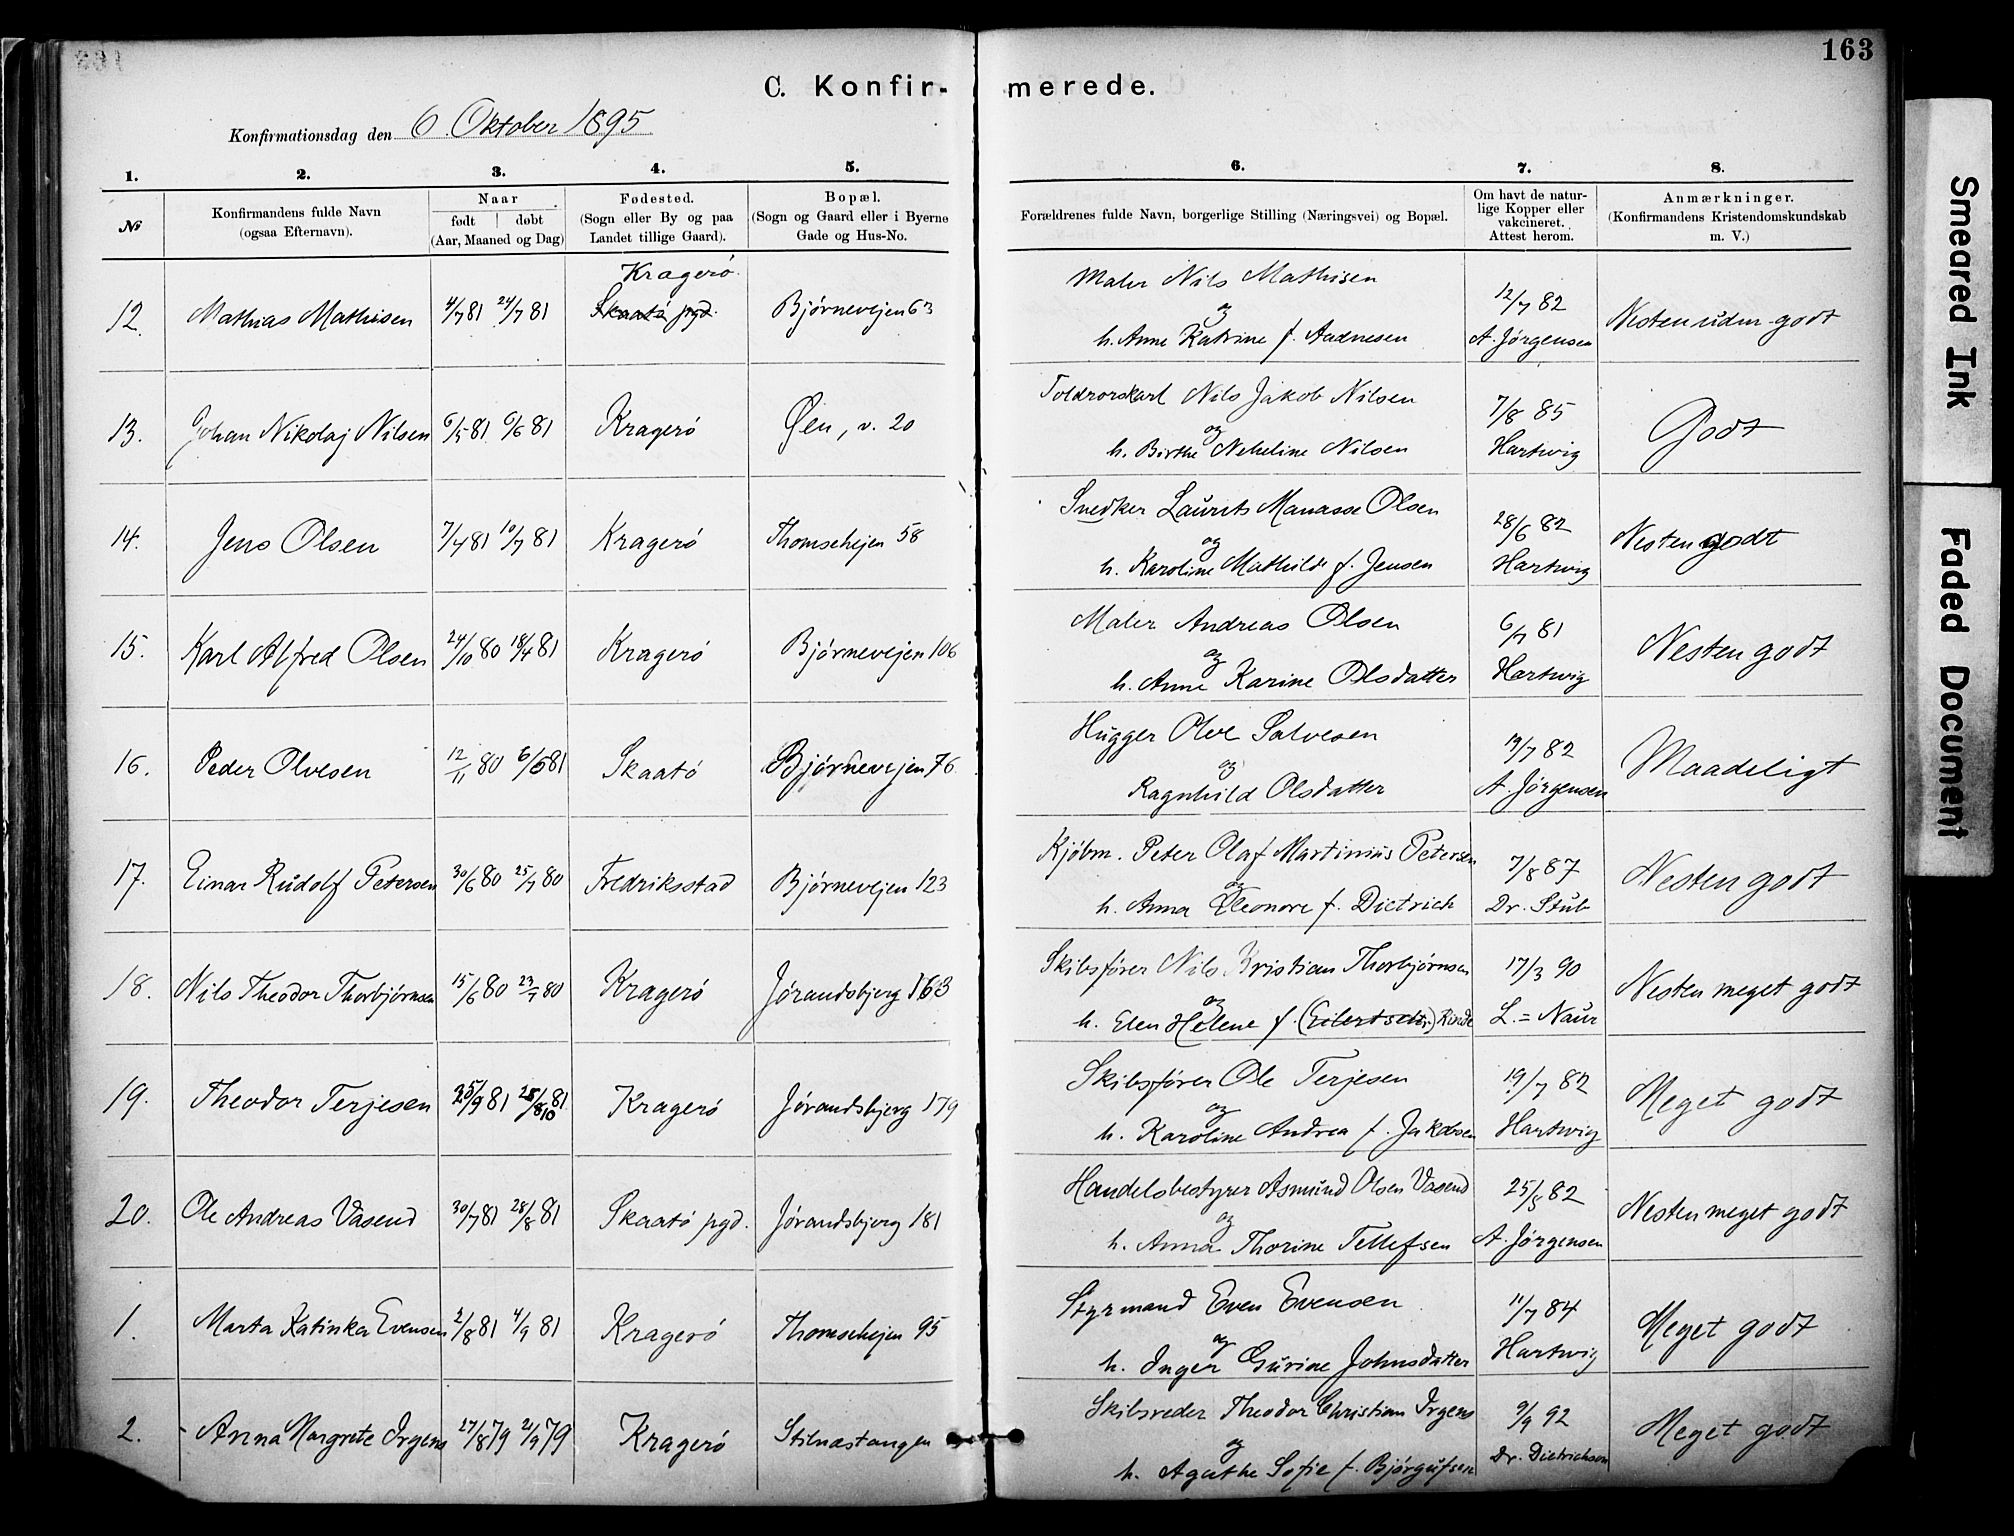 163
C. Konfir-merede.
Konfirmationsdag den 6. Oktober 1895
1. 2. 3. 4. 5. 6. 7. 8.
№
Konfirmandens fulde Navn
(ogsaa Efternavn).
Naar
født | døbt
(Aar, Maaned og Dag)
Fødested.
(Sogn eller By og paa
Landet tillige Gaard).
Bopæl.
(Sogn og Gaard eller i Byerne
Gade og Hus-No.
Forældrenes fulde Navn, borgerlige Stilling (Næringsvei) og Bopæl.
Om havt de natur-
lige Kopper eller
vakcineret.
Attest herom.
Anmærkninger.
(Konfirmandens Kristendomskundskab
m. V.)
Kragerø
12. Mathias Mathisen 4/7 81 24/7 81 Skaatø pgd. Bjørnevejen 63
Maler Nils Mathisen
og
h. Anne Katrine f. Aadnesen
12/7 82
A. Jørgensen
Nesten uden godt
13. Johan Nikolaj Nilsen 6/5 81 6/6 81 Kragerø Øen, v. 20
Toldrorskarl Nils Jakob Nilsen
og
h. Birthe Neheline Nilsen
7/8 85
Hartwig
Godt
14. Jens Olsen 7/4 81 10/7 81 Kragerø Thomsehejen 58
Snedker Laurits Manasse Olsen
og
h. Karoline Mathilde f. Jensen
28/6 82
Hartwig
Nesten godt
15. Karl Alfred Olsen 24/10 80 18/4 81 Kragerø Bjørnevejen 106
Maler Andreas Olsen
og
h. Anne Karine Olsdatter
6/7 81
Hartwig
Nesten godt
16. Peder Olvesen 12/11 80 6/6 81 Skaatø Bjørnevejen 76
Hugger Olve Salvesen
og
Ragnhild Olsdatter
19/7 82
A. Jørgensen
Maadeligt
17. Einar Rudolf Petersen 30/6 80 25/7 80 Fredriksstad Bjørnevejen 123
Kjøbm. Peter Olaf Martinius Petersen
og
h. Anna Eleonore f. Dietrich
7/8 87
Dr. Stub
Nesten godt
18. Nils Theodor Thorbjørnsen 15/6 80 23/7 80 Kragerø Jørandsbjerg 163
Skibsfører Nils Kristian Thorbjørnsen
og
h. Elen Helene f. (Eilertsen) Rinde
17/3 90
L. = Naur
Nesten meget godt
19. Theodor Terjesen 25/9 81 81 Kragerø Jørandsbjerg 179
Skibsfører Ole Terjesen
og
h. Karoline Andrea f. Jakobsen
19/7 82
Hartwig
Meget godt
20. Ole Andreas Vasend 30/7 81 28/8 81 Skaatø pgd. Jørandsbjerg 181
Handelsbestyrer Asmund Olsen Vasend
og
h. Anna Thorine Tellefsen
25/5 82
A. Jørgensen
Nesten meget godt
1. Marta Katinka Evensen 2/8 81 4/9 81 Kragerø Thomsehejen 95
Styrmand Even Evensen
og
h. Inger Gurine Johnsdatter
11/7 84
Hartwig
Meget godt
2. Anna Margrete Irgens 27/8 79 21/9 79 Kragerø Stilnæstangen
Skibsreder Theodor Christian Irgens
og
h. Agathe Sofie f. Bjørgufsen
9/9 92
Dr. Dietrichson
Meget godt
Smeared Ink
Faded Document